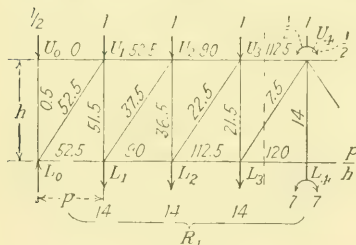 1/2 1 1 1 1/2 1 1/2
U₀ 0 U₁ 52.5 U₂ 90 U₃ 112.5 U₄
h 0.5 52.5 51.5 37.5 36.5 22.5 21.5 7.5 14
52.5 90 112.5 120 P/h
L₀ L₁ L₂ L₃ L₄
p 7 7
14 14 14
R₁